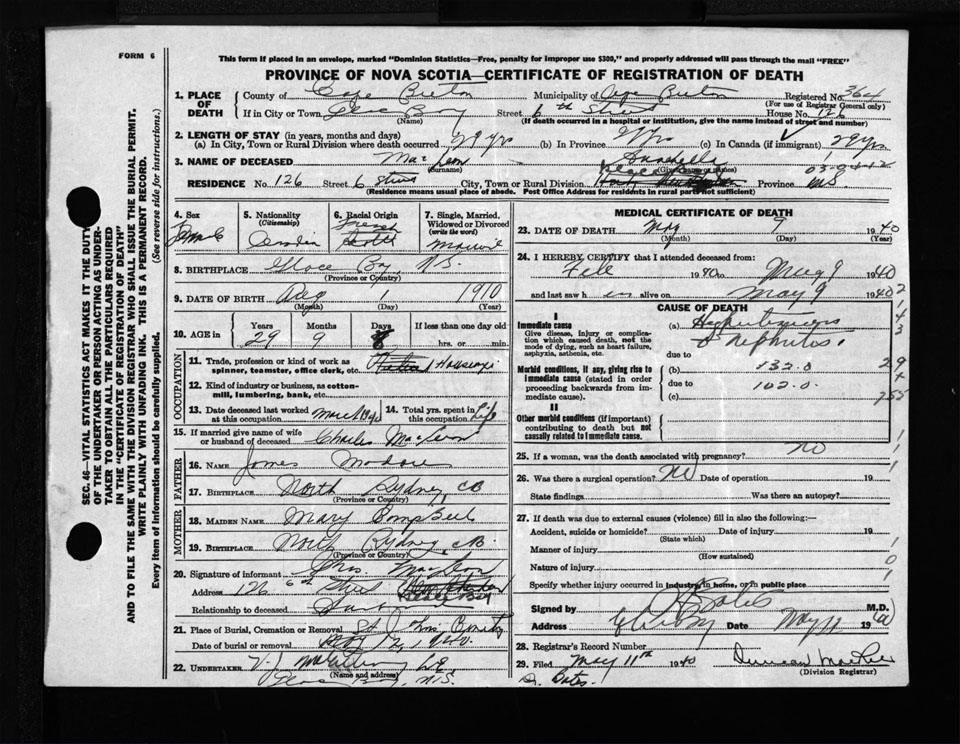 FORM 6
This form if placed in an envelope, marked "Dominion Statistics—Free, penalty for improper use $300," and properly addressed will pass through the mail "FREE"
PROVINCE OF NOVA SCOTIA—CERTIFICATE OF REGISTRATION OF DEATH
1. PLACE OF DEATH
County of Cape Breton Municipality of Cape Breton Registered No. 364
(For use of Registrar General only)
If in City or Town Glace Bay Street 6th Street House No. 126
(Name) (If death occurred in a hospital or institution, give the name instead of street and number)
2. LENGTH OF STAY (in years, months and days)
(a) In City, Town or Rural Division where death occurred 29 yrs (b) In Province (c) In Canada (if immigrant) 29 yrs
3. NAME OF DECEASED MacLeon Annabelle
(Surname) (Given name or names)
RESIDENCE No. 126 Street 6 Street City, Town or Rural Division Province N.S.
(Residence means usual place of abode. Post Office Address for residents in rural parts not sufficient)
4. Sex
Female
5. Nationality (Citizenship)
Canadian
6. Racial Origin
French
7. Single, Married, Widowed or Divorced (write the word)
Married
8. BIRTHPLACE Glace Bay, N.S.
(Province or Country)
9. DATE OF BIRTH Aug 1 1910
(Month) (Day) (Year)
10. AGE in Years Months Days If less than one day old
29 9 8 hrs. or min.
OCCUPATION
11. Trade, profession or kind of work as spinner, teamster, office clerk, etc. Housewife
12. Kind of industry or business, as cotton-mill, lumbering, bank, etc.
13. Date deceased last worked at this occupation March 1940
14. Total yrs. spent in this occupation Life
15. If married give name of wife or husband of deceased Charles MacLeon
FATHER
16. Name James Modore
17. Birthplace North Sydney, CB
(Province or Country)
MOTHER
18. Maiden Name Mary Campbell
19. Birthplace North Sydney CB
(Province or Country)
20. Signature of informant Chas. MacLeon
Address 126 6th Street Glace Bay
Relationship to deceased Husband
21. Place of Burial, Cremation or Removal
Date of burial or removal May 12, 1940
22. UNDERTAKER
(Name and address)
Glace Bay, N.S.
MEDICAL CERTIFICATE OF DEATH
23. DATE OF DEATH May 9 1940
(Month) (Day) (Year)
24. I HEREBY CERTIFY that I attended deceased from:
Feb 1940 to May 9 1940
and last saw h er alive on May 9 1940
CAUSE OF DEATH
I
Immediate cause
Give disease, injury or complication which caused death, not the mode of dying, such as heart failure, asphyxia, asthenia, etc.
(a) Hypertension
& Nephritis
due to
Morbid conditions, if any, giving rise to immediate cause (stated in order proceeding backwards from immediate cause).
(b) 132.0
due to 102.0
(c)
II
Other morbid conditions (if important) contributing to death but not causally related to immediate cause.
25. If a woman, was the death associated with pregnancy? NO
26. Was there a surgical operation? NO Date of operation 19
State findings Was there an autopsy?
27. If death was due to external causes (violence) fill in also the following:—
Accident, suicide or homicide? Date of injury 19
(State which)
Manner of injury
(How sustained)
Nature of injury
Specify whether injury occurred in industry, in home, or in public place
Signed by Bates M.D.
Address Date May 11 1940
28. Registrar's Record Number
29. Filed May 11th 1940 Duncan MacRae
(Division Registrar)
Dr. Bates.
SEC. 46—VITAL STATISTICS ACT MAKES IT THE DUTY OF THE UNDERTAKER OR PERSON ACTING AS UNDERTAKER TO OBTAIN ALL THE PARTICULARS REQUIRED IN THE "CERTIFICATE OF REGISTRATION OF DEATH" AND TO FILE THE SAME WITH THE DIVISION REGISTRAR WHO SHALL ISSUE THE BURIAL PERMIT.
WRITE PLAINLY WITH UNFADING INK. THIS IS A PERMANENT RECORD.
Every item of information should be carefully supplied. (See reverse side for instructions.)